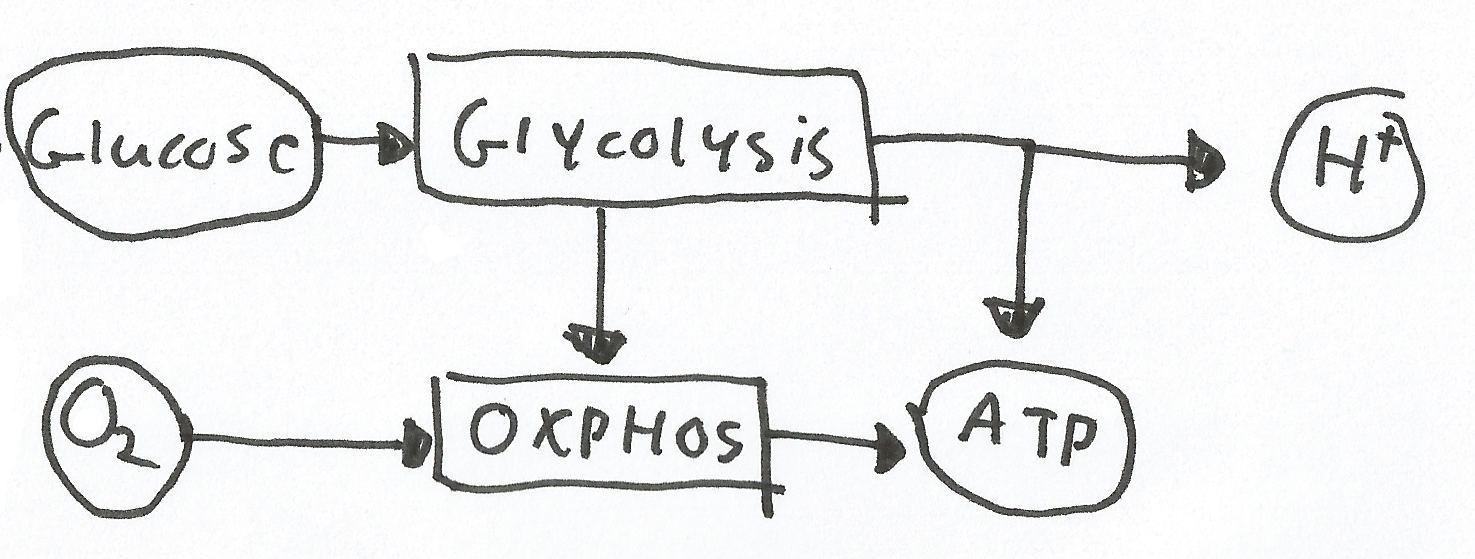 Glucose
Glycolysis
H+
O2
OXPHOS
ATP